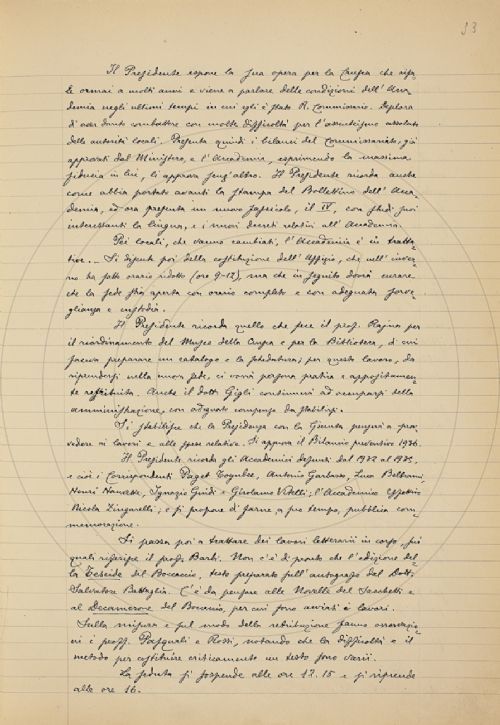 53
Il Presidente espone la sua opera per la Crusca che
è ormai a molti anni e viene a parlare delle condizioni dell' Acca-
demia negli ultimi tempi in cui egli è stato R. Commissario. Deplora
d'aver dovuto combattere con molte difficoltà per l'assenteismo assoluto
delle autorità locali. Presenta quindi i bilanci del Commissariato, già
approvati dal Ministero, e l'Accademia, esprimendo la massima
fiducia in lui, li approva senz'altro. Il Presidente ricorda anche
come abbia portato avanti la stampa del Bollettino dell' Acca-
demia, ed ora presenta un nuovo fascicolo, il IV, con studi suoi
interessanti la lingua, e i nuovi decreti relativi all' Accademia.
Pei locali, che vanno cambiati, l'Accademia è in tratta-
tive. — Si disputa poi della costituzione dell' Uffizio, che nell' inver-
no ha fatto orario ridotto (ore 9-12), ma che in seguito dovrà curare
che la sede stia aperta con orario completo e con adeguata sorve-
glianza e custodia.
Il Presidente ricorda quello che fece il prof. Rajna per
il riordinamento del Museo della Crusca e per la Biblioteca, di cui
faceva preparare un catalogo e la schedatura; per questo lavoro, da
riprendersi nella nuova sede, ci vorrà persona pratica e appositamen-
te retribuita. Anche il dott. Gigli continuerà ad occuparsi della
amministrazione, con adeguato compenso da stabilirsi.
Si stabilisce che la Presidenza con la Giunta pensi a prov-
vedere ai lavori e alle spese relative. Si approva il Bilancio preventivo 1936.
Il Presidente ricorda gli Accademici defunti dal 1922 al 1935,
e cioè i Corrispondenti Paget Toynbee, Antonio Garbasso, Luca Beltrami,
Henri Hauvette, Ignazio Guidi e Girolamo Vitelli; l'Accademico effettivo
Nicola Zingarelli; e si propone di farne, a suo tempo, pubblica com-
memorazione.
Si passa poi a trattare dei lavori letterarii in corso, sui
quali riferisce il prof. Barbi. Non c'è di pronto che l'edizione del-
la Teseide del Boccaccio, testo preparato sull'autografo dal Dott.
Salvatore Battaglia. C'è da pensare alle Novelle del Sacchetti e
al Decamerone del Boccaccio, per cui sono avviati i lavori.
Sulla misura e sul modo della retribuzione fanno osservazio-
ni i proff. Pasquali e Rossi, notando che la difficoltà e il
metodo per costituire criticamente un testo sono varii.
La seduta si sospende alle ore 12.15 e si riprende
alle ore 16.